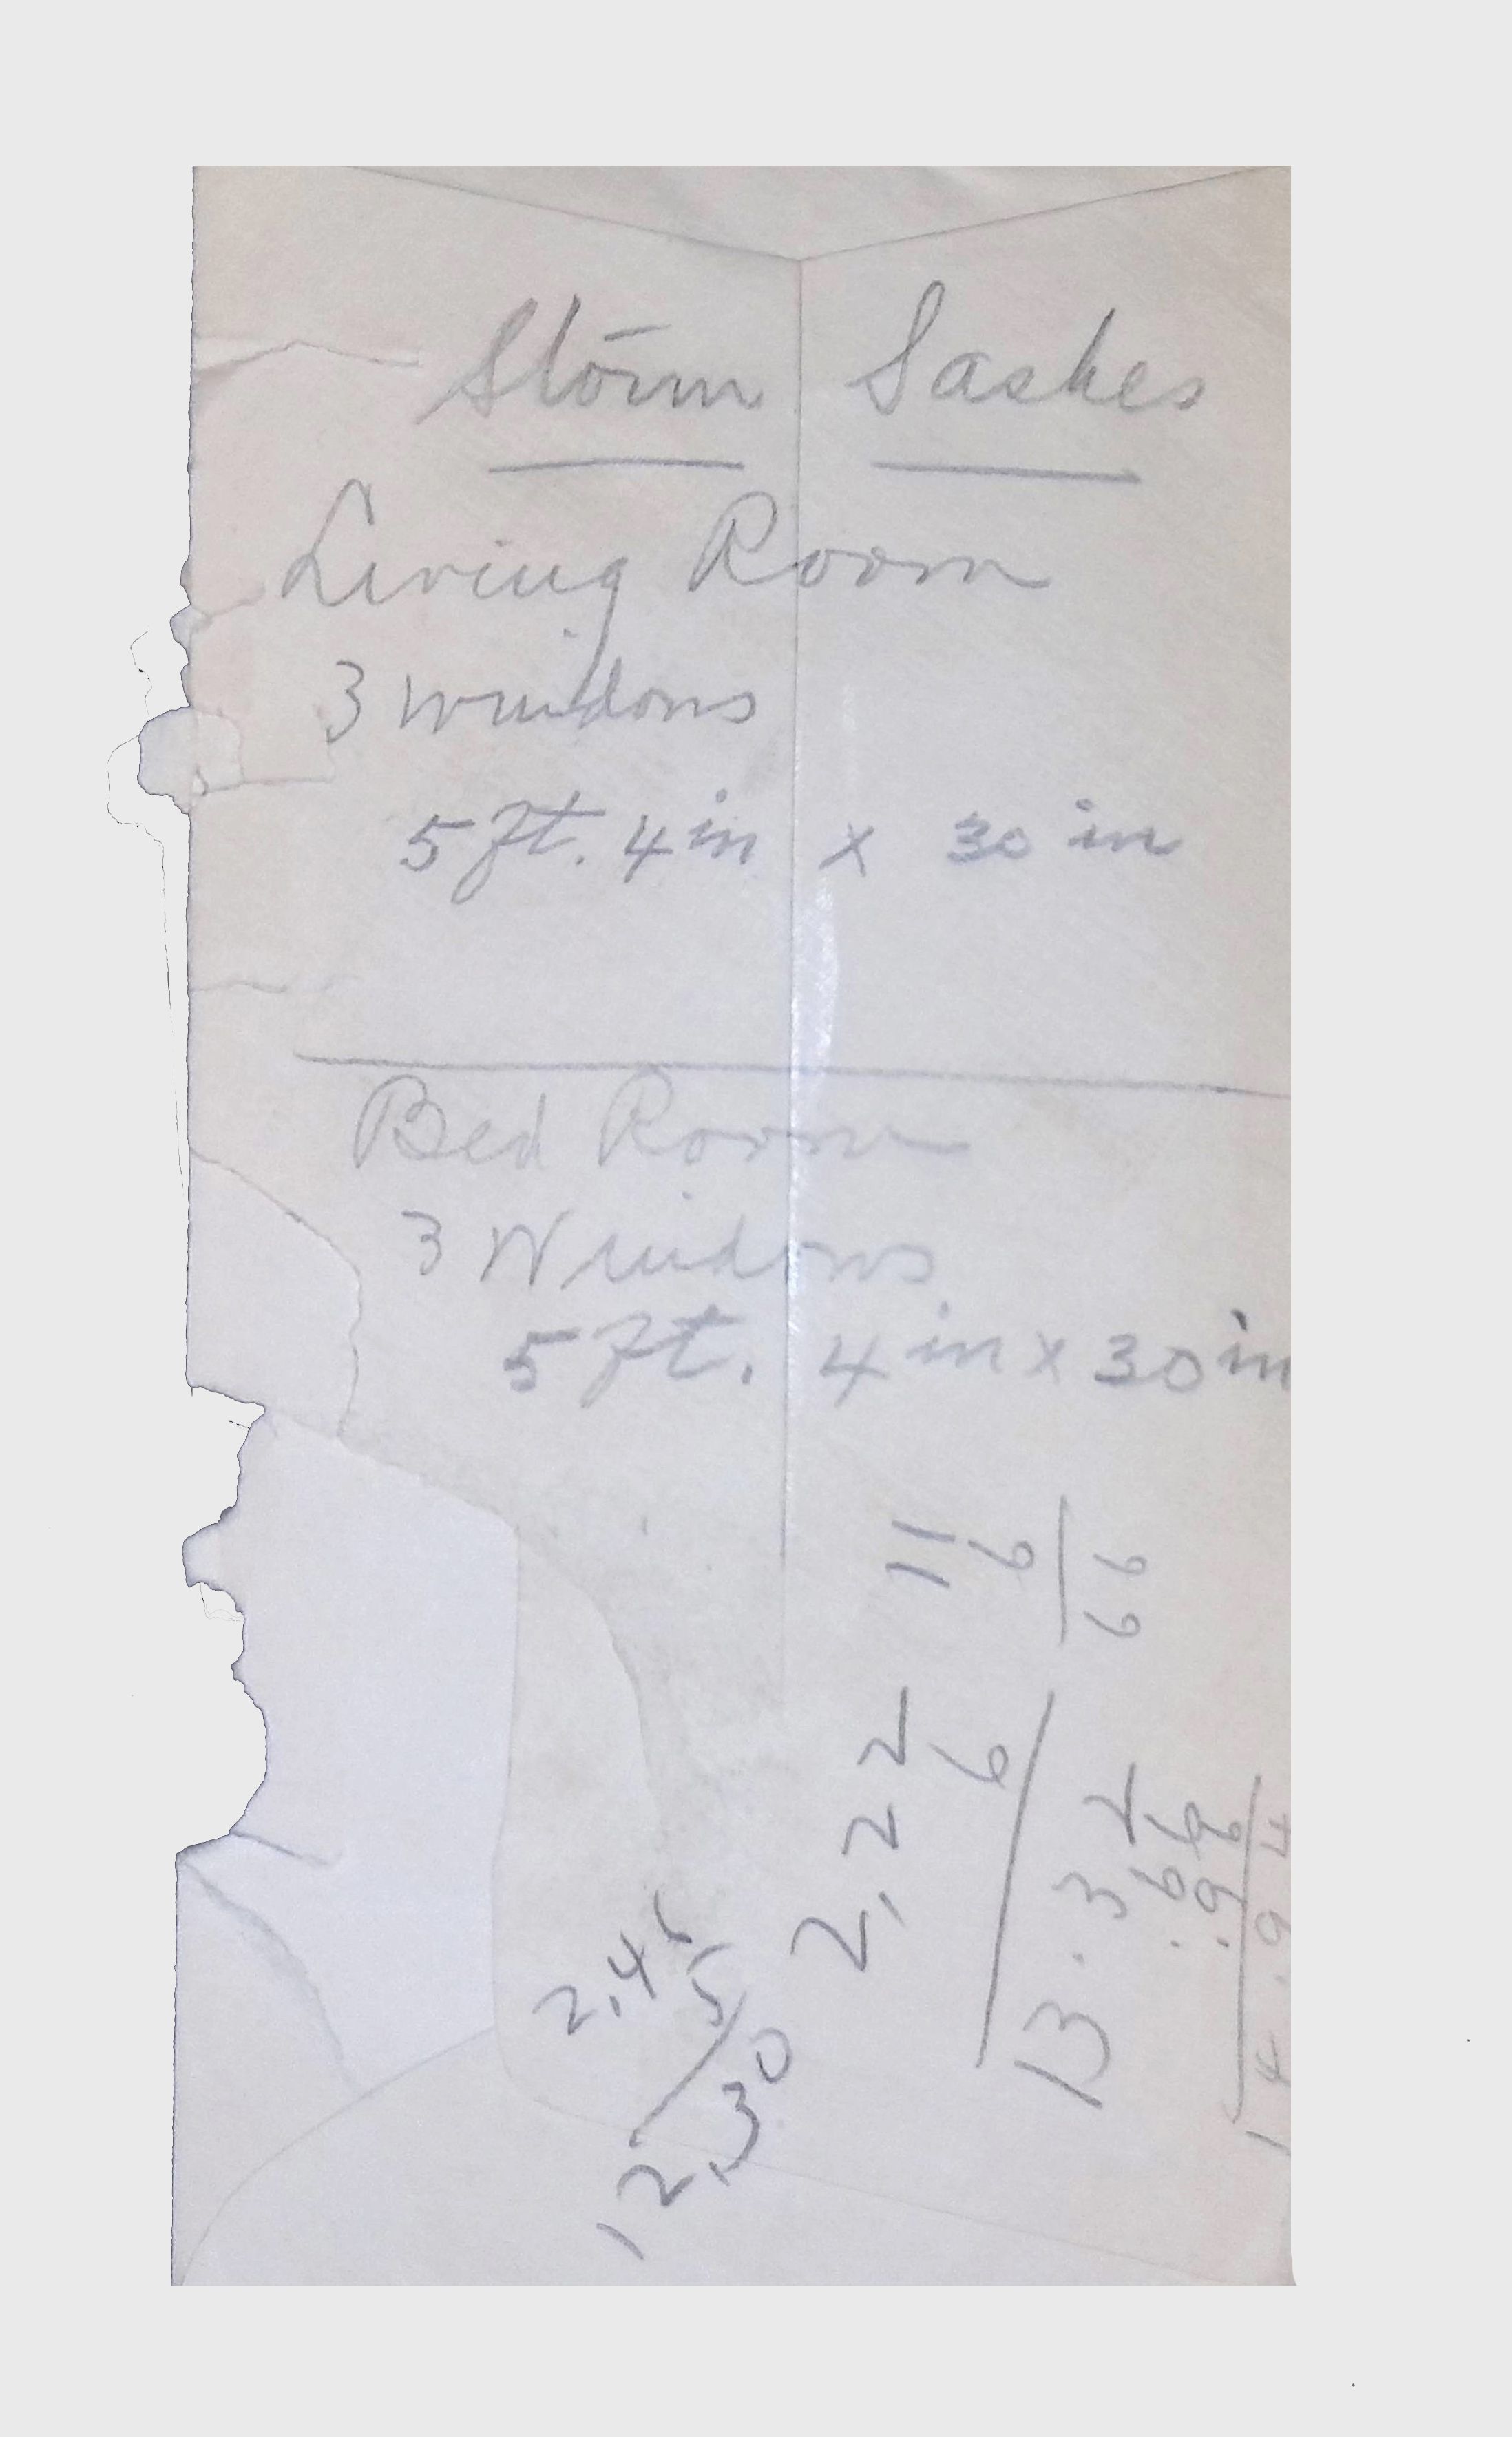 Storm Sashes
Living Room
3 Windows
5 ft. 4 in x 30 in
Bed Room
3 Windows
5 ft. 4 in x 30 in
11
6
66
2,22
6
13.32
.66
.96
14.94
2,46
5
12,30